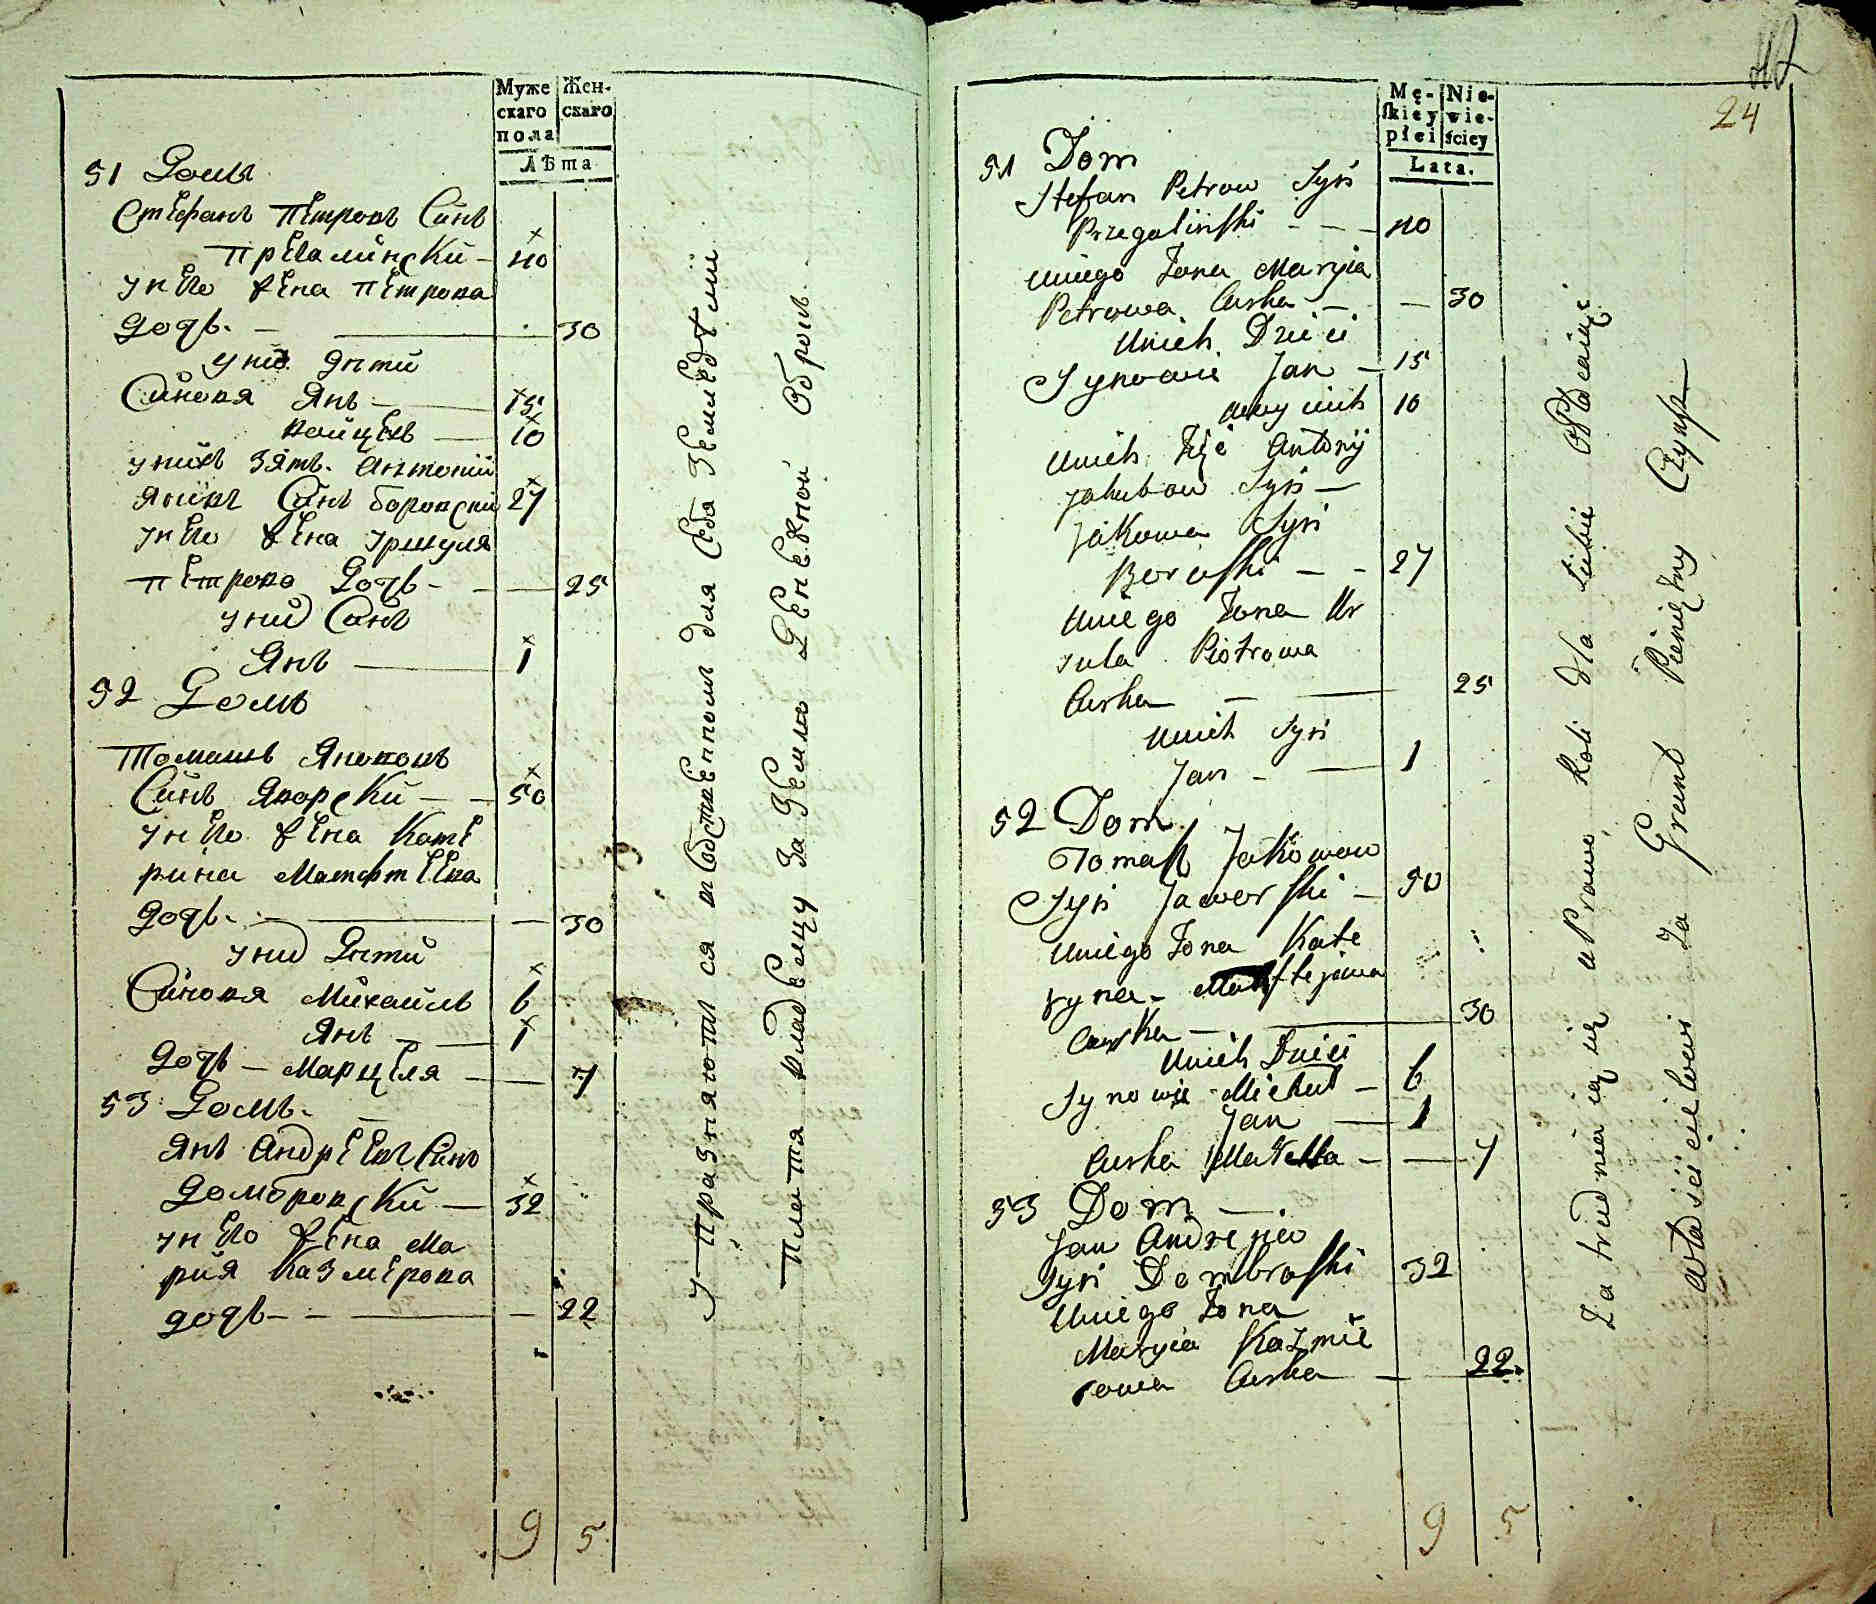 Муже
скаго
пола
Жен-
скаго
Лѣта
51 Домъ
Стефанъ Петровъ Синъ
Прегалински - 40
у него жена Петрова
дочь - 30
у них дѣти
Синовя Янъ - 15
Войцехъ - 10
у нихъ зять Антоній
Яковъ Синъ Боровски 27
у него жена Уршуля
Петрова Дочь - 25
у них Синъ
Янъ - 1
52 Домъ
Томашъ Яковов
Синъ Яворски - 50
у него жена Кате
рина Матфтеева
дочь - 30
у них Дѣти
Синовя Михаилъ 6
Янъ - 1
Дочь - Марцеля - 7
53 Домъ
Янъ Андреевъ Синъ
Домбровски - 32
у него жена Ма
рия Казмерова
дочь - 22
9 5
Упражняются собственном для себя земледѣлии
Платя владельцу за землю денежной оброкъ
24
Mę-
skiey
płci
Nie-
wie-
ściey
Lata.
51 Dom
Stefan Petrow Syn
Przegalinski - 40
Uniego Zona Maryia
Petrowa Curka - 30
Unich Dzieci
Synowie Jan - 15
Woycieh 10
Unich Zięć Antonij
Jakubow Syn -
Jakowa Syn
Boroski - - 27
Uniego Zona Ur
sula Piotrowa
Curka - 25
Unich Syn
Jan - 1
52 Dom
Tomasz Jakowow
Syn Jaworski - 50
Uniego Zona Kate
ryna - Matftejowa
Curka - 30
Unich Dzieci
Synowie - Michał - 6
Jan - 1
Curka Marcella - 7
53 Dom
Jan Andrejew
Syn Dombroski 32
Uniego Zona
Maryia Kazmie
rowa Curka - 22.
9 5
Zatrudniaią się uprawą Roli dla siebie opłacaiąc
właścicielowi za Grunt Pieniężny Czynsz